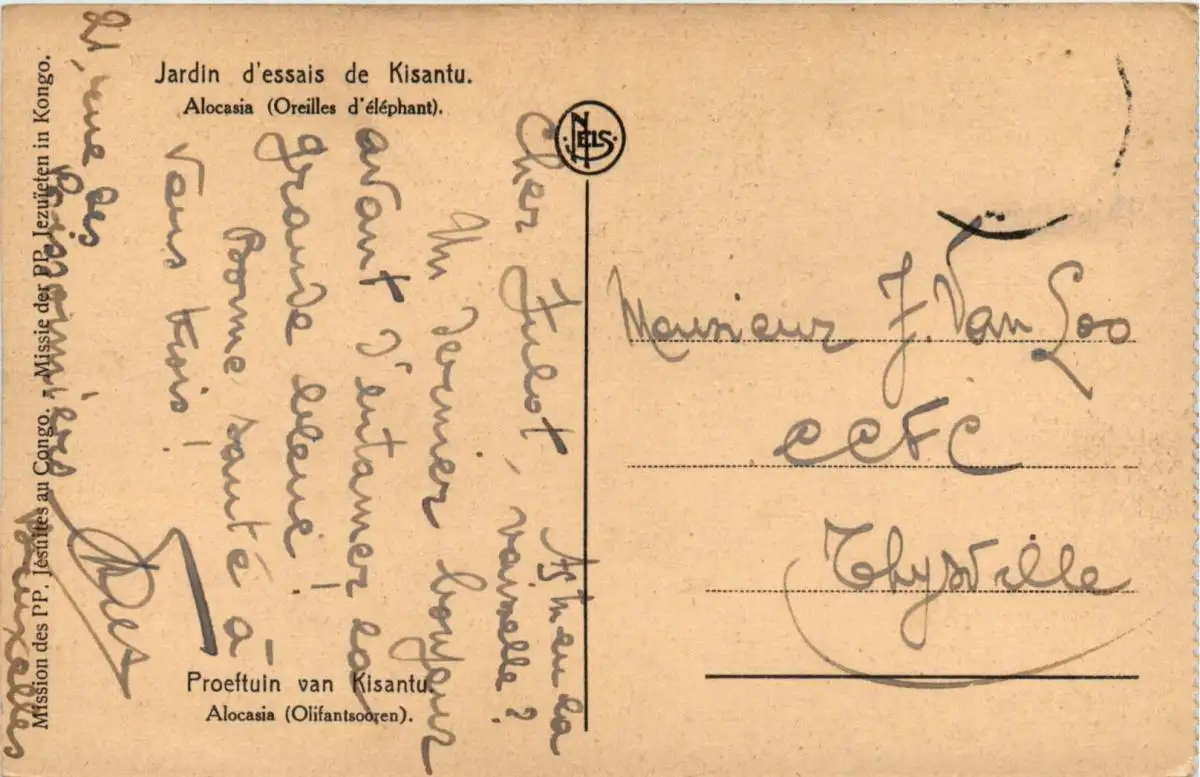 Jardin d'essais de Kisantu.
Alocasia (Oreilles d'éléphant).
NELS
Mission des PP. Jésuites au Congo. - Missie der PP. Jezuieten in Kongo.
Cher Julot,
vaisselle?
Un dernier bonjour
avant d'entamer la
grande plaine!
Bonne santé à
vous trois!
21, rue des
Bruxelles
Proeftuin van Kisantu.
Alocasia (Olifantsooren).
Monsieur J. Van Loo
CCFC
Thysville